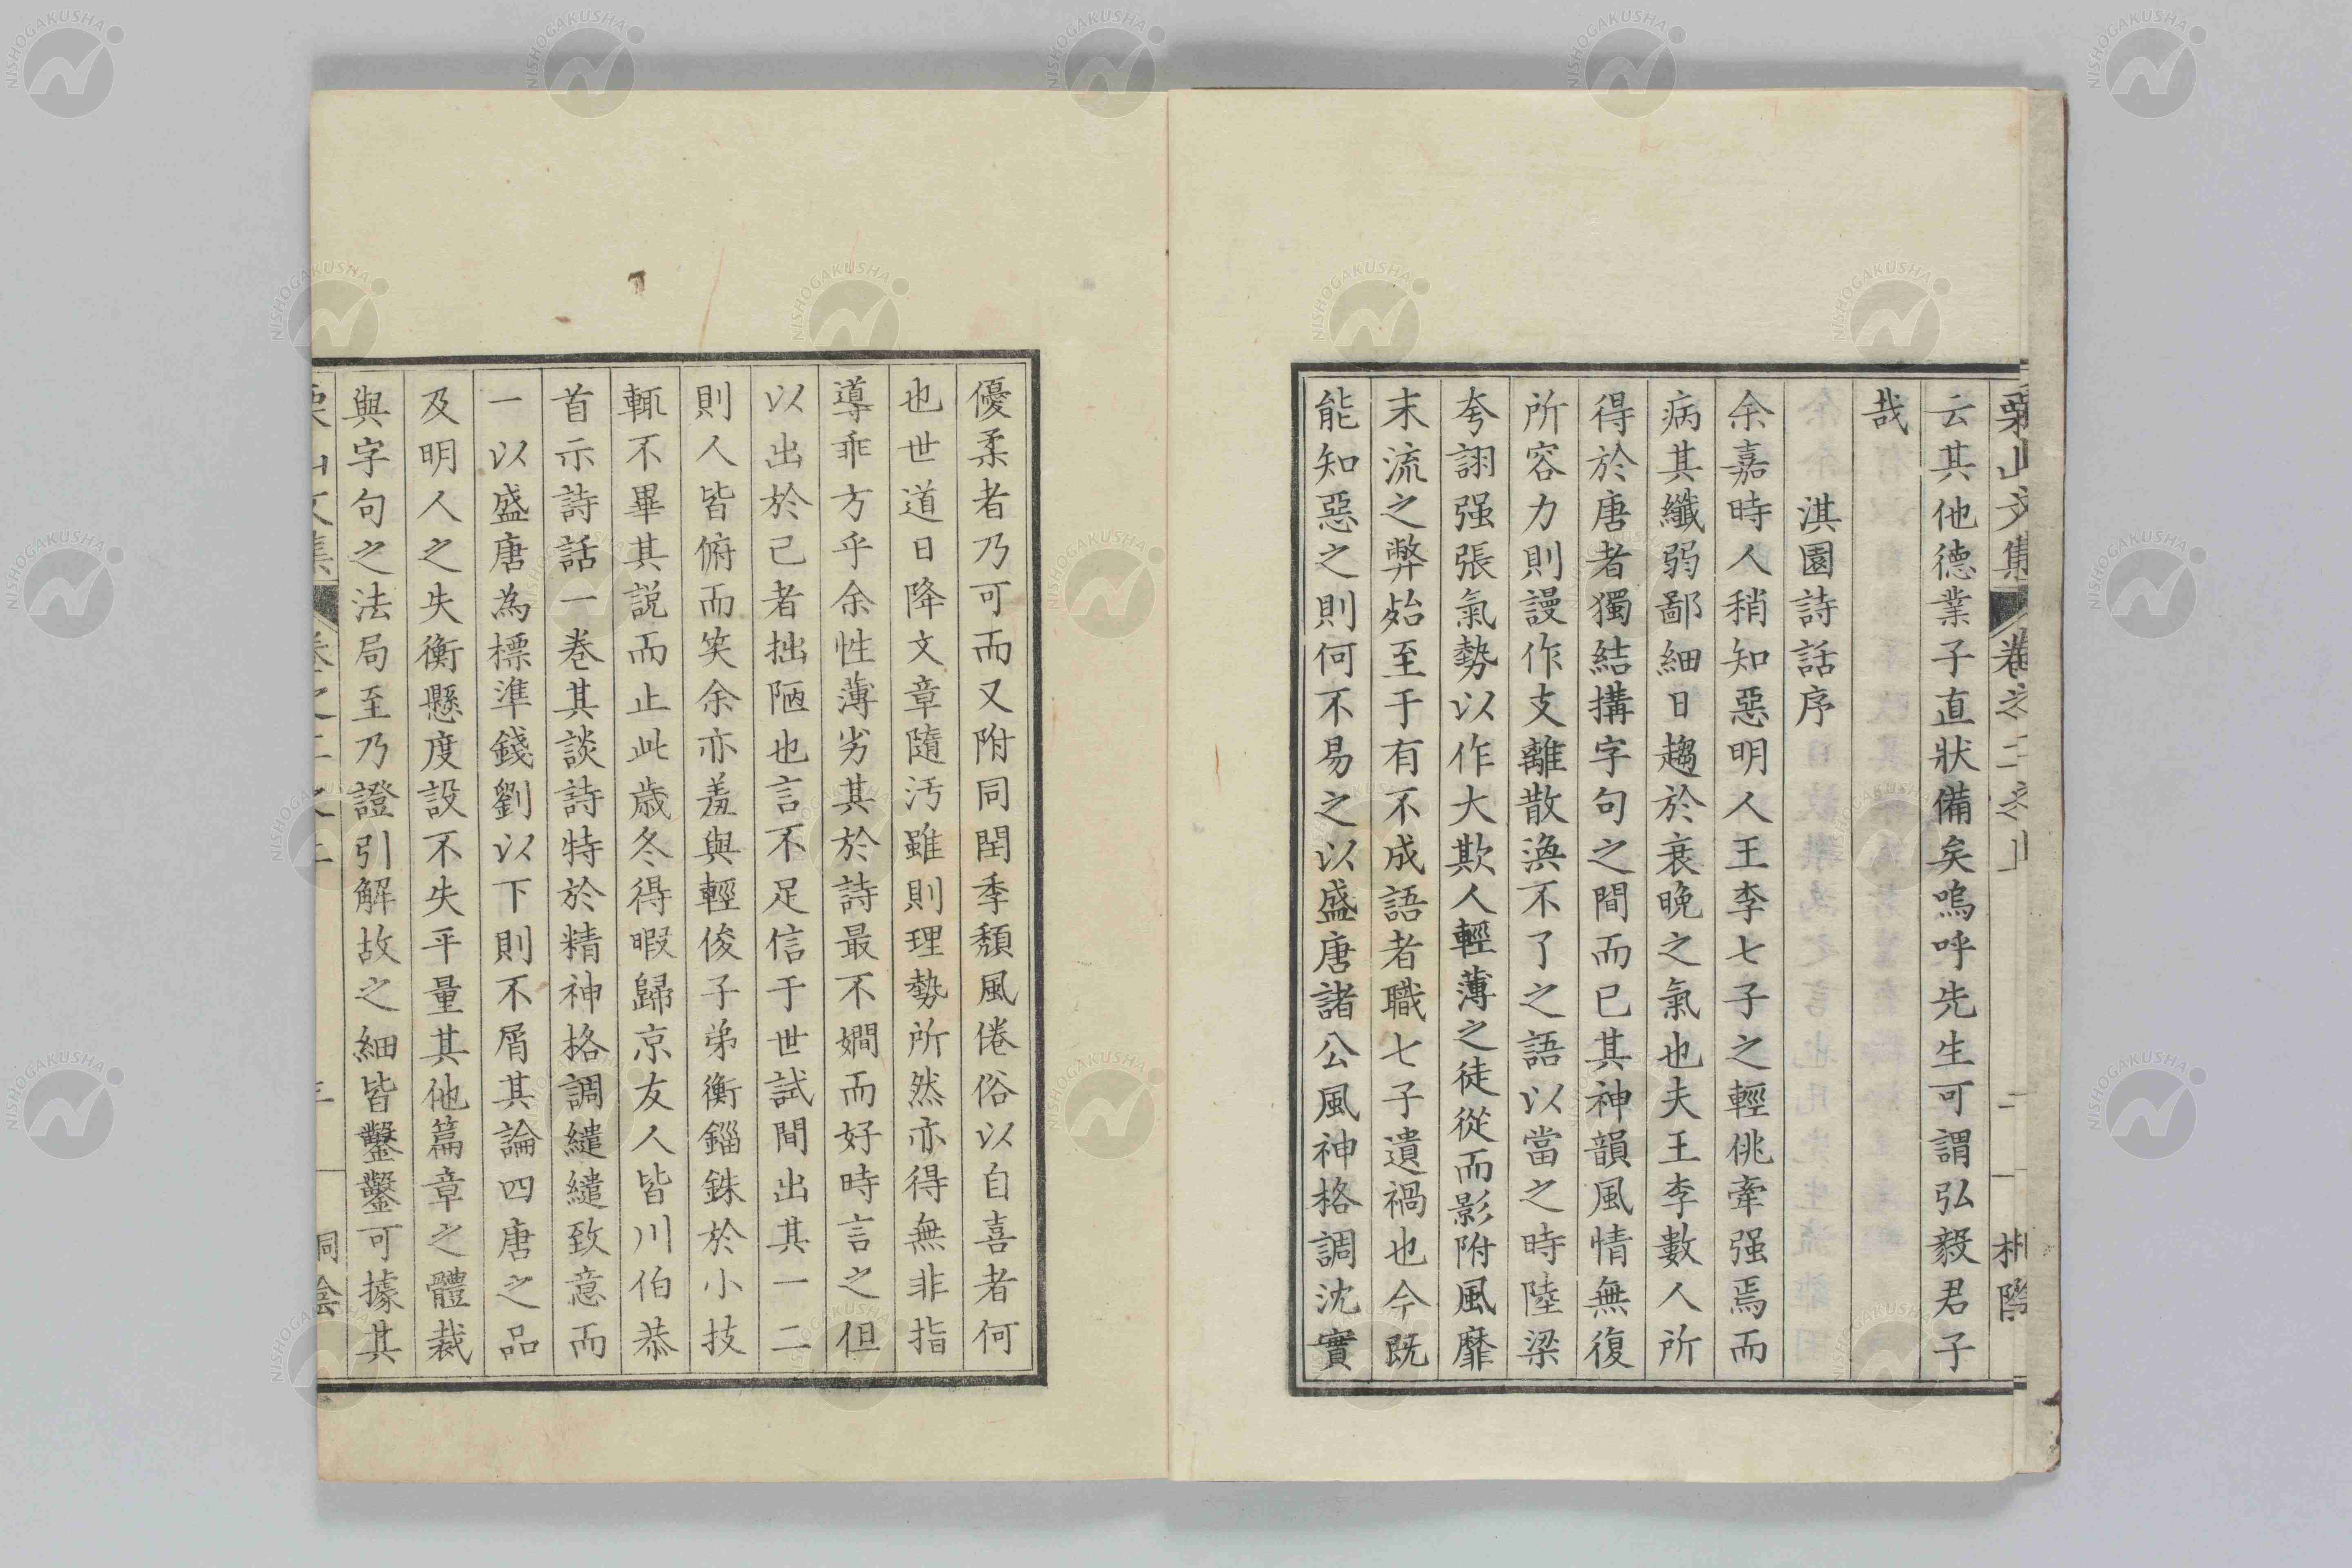 栗山文集 卷之二之上 二 桐陰
云其他德業子直狀備矣嗚呼先生可謂弘毅君子
哉
淇園詩話序
余嘉時人稍知惡明人王李七子之輕佻牽强焉而
病其纖弱鄙細日趨於衰晚之氣也夫王李數人所
得於唐者獨結搆字句之間而已其神韻風情無復
所容力則謾作支離散渙不了之語以當之時陸梁
夸詡强張氣勢以作大欺人輕薄之徒從而影附風靡
末流之弊殆至于有不成語者職七子遺禍也今既
能知惡之則何不易之以盛唐諸公風神格調沈實
優柔者乃可而又附同閏季頹風倦俗以自喜者何
也世道日降文章隨汚雖則理勢所然亦得無非指
導乖方乎余性薄劣其於詩最不嫺而好時言之但
以出於己者拙陋也言不足信于世試間出其一二
則人皆俯而笑余亦羞與輕俊子弟衡錙銖於小技
輒不畢其説而止此歳冬得暇歸京友人皆川伯恭
首示詩話一卷其談詩特於精神格調繾繾致意而
一以盛唐為標準錢劉以下則不屑其論四唐之品
及明人之失衡懸度設不失平量其他篇章之體裁
與字句之法局至乃證引解故之細皆鑿鑿可據其
栗山文集 卷之二之上 三 桐陰
NISHOGAKUSHA